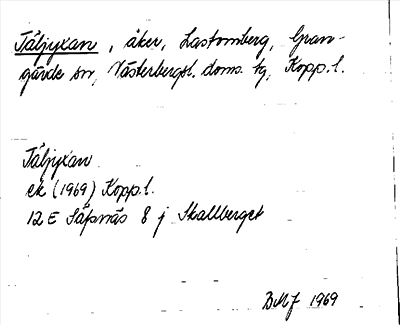 Täljyxan, åker, Lastomberg, Gran-
gärde sn, Västerbergsl. doms. tg, Kopp. l.
Täljyxan
ek (1969) Kopp. l.
12 E Säfsnäs 8 j Skallberget
BMJ 1969